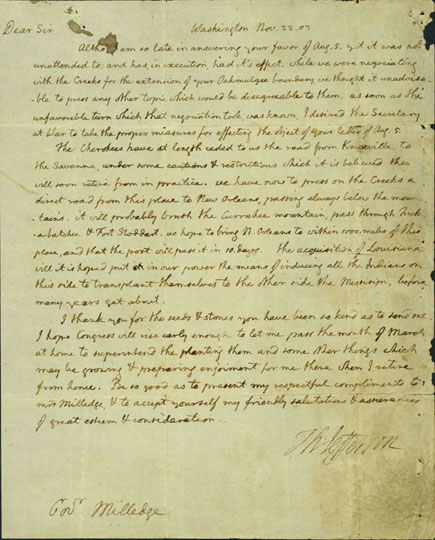 Dear Sir Washington Nov. 22. 03
Altho' I am so late in answering your favor of Aug. 5. yet it was not
unattended to; and has, in execution, had it's effect. while we were negociating
with the Creeks for the extension of your Oakmulgee boundary, we thought it unadvisa-
-ble to press any other topic which would be disagreeable to them. as soon as the
unfavorable turn which that negociation took was known, I desired the Secretary
at War to take the proper measures for effecting the object of your letter of Aug. 5.
The Cherokees have at length ceded to us the road from Knoxville to
the Savanna, under some cautions & restrictions which it is believed they
will soon retire from in practice. we have now to press on the Creeks a
direct road from this place to New Orleans, passing always below the moun-
-tains. it will probably brush the Currahee mountain, pass through Tuck-
-abatchee & Fort Stoddart. we hope to bring N. Orleans to within 1000. miles of this
place, and that the post will pass it in 10. days. The acquisition of Louisiana
will it is hoped put in our power the means of inducing all the Indians on
this side to transplant themselves to the other side the Missisipi, before
many years get about.
I thank you for the seeds & stones you have been so kind as to send me.
I hope Congress will rise early enough to let me pass the month of March
at home to superintend the planting them and some other things which
may be growing & preparing enjoiment for me there when I retire
from hence. Be so good as to present my respectful compliments to
mrs Milledge, & to accept yourself my friendly salutations & assurances
of great esteem & consideration.
Th: Jefferson
Govr. Milledge